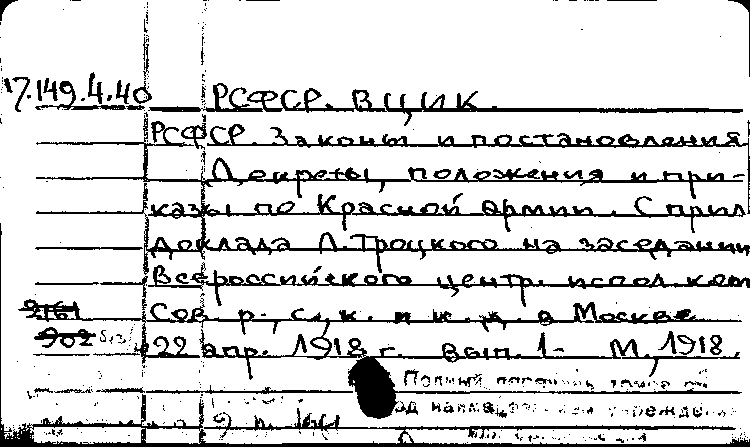 17.149.4.40 РСФСР. ВЦИК.
РСФСР. Законы и постановления
Декреты, положения и при-
казы по Красной армии. С прил
доклада Л. Троцкого на заседании
Всероссийского центр. испол. ком
2161 Сов. р., с., к. и к. д. в Москве
902 22 апр. 1918 г. Вып. 1- М., 1918.
Полный перечень томов см
под назва